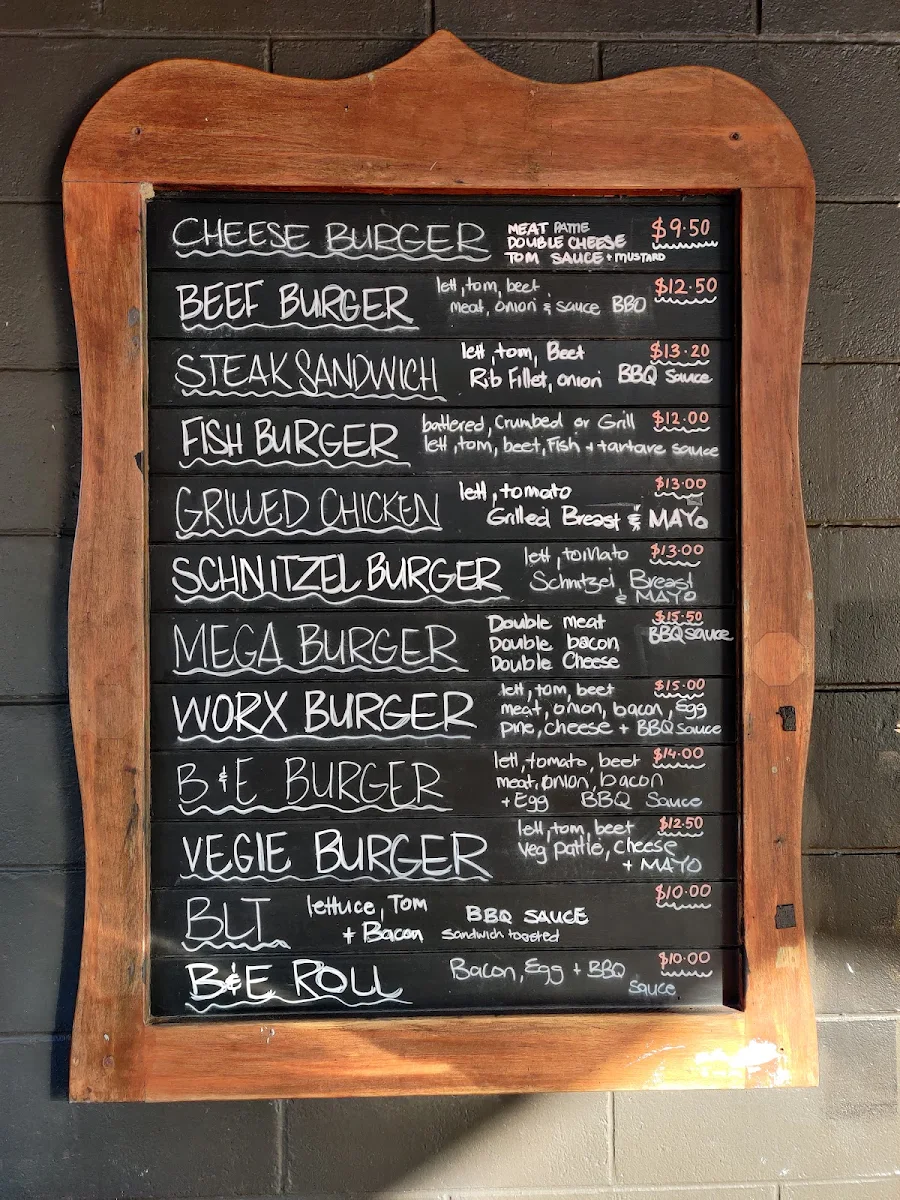 CHEESE BURGER
MEAT PATTIE
DOUBLE CHEESE
TOM SAUCE + MUSTARD
$9.50
BEEF BURGER
lett, tom, beet
meat, onion & sauce BBQ
$12.50
STEAK SANDWICH
lett, tom, Beet
Rib Fillet, onion BBQ Sauce
$13.20
FISH BURGER
battered, Crumbed or Grill
lett, tom, beet, Fish + tartare sauce
$12.00
GRILLED CHICKEN
lett, tomato
Grilled Breast & MAYO
$13.00
SCHNITZEL BURGER
lett, tomato
Schnitzel Breast
& MAYO
$13.00
MEGA BURGER
Double meat
Double bacon
Double Cheese
$15.50
BBQ Sauce
WORX BURGER
lett, tom, beet
meat, onion, bacon, Egg
pine, cheese + BBQ sauce
$15.00
B&E BURGER
lett, tomato, beet
meat, onion, bacon
+ Egg BBQ Sauce
$14.00
VEGIE BURGER
lett, tom, beet
veg pattie, cheese
+ MAYO
$12.50
BLT
lettuce, Tom
+ Bacon
BBQ SAUCE
Sandwich toasted
$10.00
B&E ROLL
Bacon, Egg + BBQ
sauce
$10.00